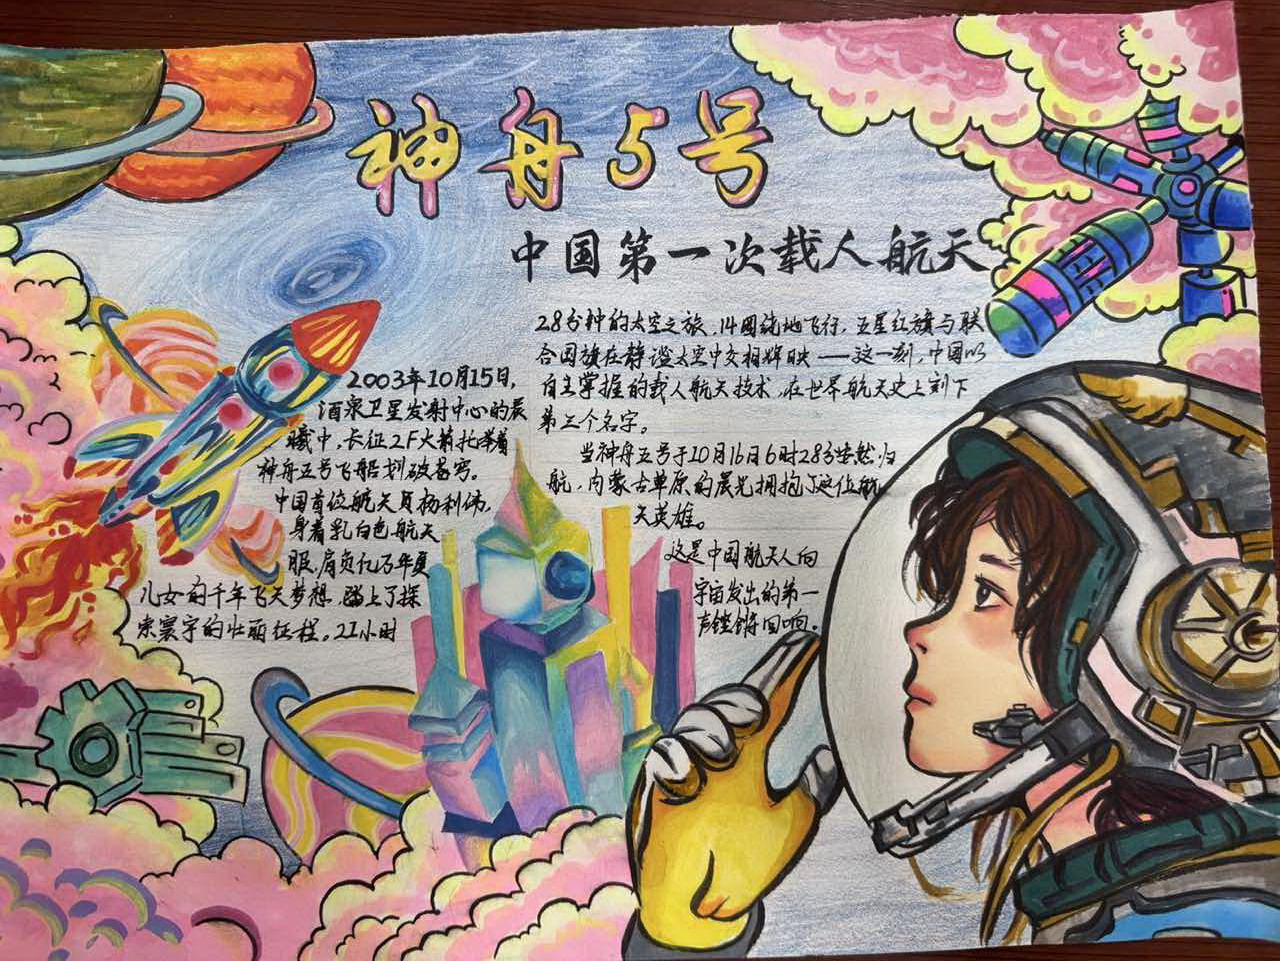 神舟5号
中国第一次载人航天
2003年10月15日,
酒泉卫星发射中心的晨
曦中,长征2F火箭托举着
神舟五号飞船划破苍穹。
中国首位航天员杨利伟,
身着乳白色航天
服,肩负亿万华夏
儿女的千年飞天梦想,踏上了探
索寰宇的壮丽征程。21小时
28分钟的太空之旅,14圈绕地飞行,五星红旗与联
合国旗在静谧太空中交相辉映——这一刻,中国以
自主掌握的载人航天技术,在世界航天史上刻下
第三个名字。
当神舟五号于10月16日6时28分安然归
航,内蒙古草原的晨光拥抱了这位航
天英雄。
这是中国航天人向
宇宙发出的第一
声铿锵回响。